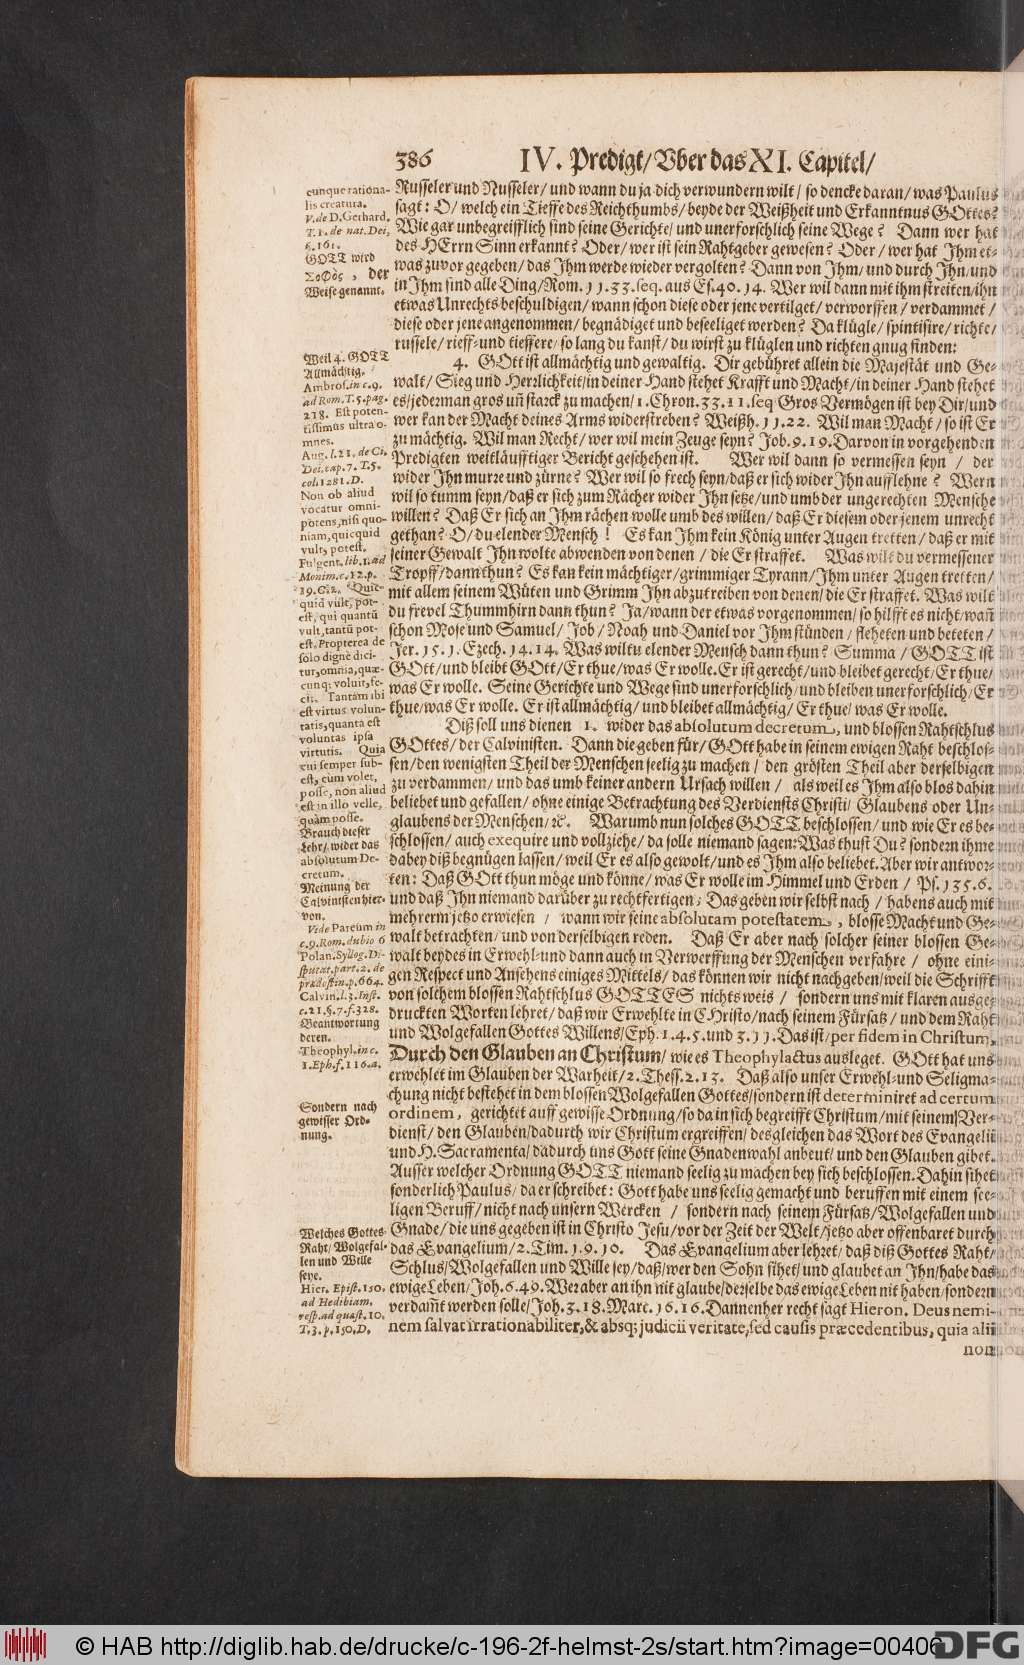 386 IV. Predigt/ Vber das XI. Capitel/
Russeler und Nusseler/ und wann du ja dich verwundern wilt/ so dencke daran/ was Paulus
sagt: O/ welch ein Tieffe des Reichthumbs/ beyde der Weißheit und Erkanntnus GOttes?
Wie gar unbegreifflich sind seine Gerichte/ und unerforschlich seine Wege? Dann wer hat
des HErrn Sinn erkannt? Oder/ wer ist sein Rahtgeber gewesen? Oder/ wer hat Ihm et-
was zuvor gegeben/ das Ihm werde wieder vergolten? Dann von Ihm/ und durch Ihn/ und
in Ihm sind alle Ding/ Rom. 11. 33. seq. aus Es. 40. 14. Wer wil dann mit ihm streiten/ ihn
etwas Unrechts beschuldigen/ wann schon diese oder jene vertilget/ verworffen/ verdammet/
diese oder jene angenommen/ begnädiget und beseeliget werden? Da klügle/ spintisire/ richte/
russele/ rieff- und tieffere/ so lang du kanst/ du wirst zu klüglen und richten gnug finden:
4. GOtt ist allmächtig und gewaltig. Dir gebühret allein die Majestät und Ge-
walt/ Sieg und Herzlichkeit/ in deiner Hand stehet Krafft und Macht/ in deiner Hand stehet
es/ jederman gros uñ starck zu machen/ 1. Chron. 33. 11. seq Gros Vermögen ist bey Dir/ und
wer kan der Macht deines Arms widerstreben? Weißh. 11. 22. Wil man Macht/ so ist Er
zu mächtig. Wil man Recht/ wer wil mein Zeuge seyn? Job. 9. 19. Darvon in vorgehenden
Predigten weitläufftiger Bericht geschehen ist. Wer wil dann so vermessen seyn / der
wider Ihn murre und zürne? Wer wil so frech seyn/ daß er sich wider Ihn aufflehne? Wern
wil so tumm seyn/ daß er sich zum Rächer wider Ihn setze/ und umb der ungerechten Mensche
willen? Daß Er sich an Ihm rächen wolle umb des willen/ daß Er diesem oder jenem unrecht
gethan? O/ du elender Mensch! Es kan Ihm kein König unter Augen tretten/ daß er mit
seiner Gewalt Ihn wolte abwenden von denen / die Er straffet. Was wilt du vermessener
Tropff/ dann thun? Es kan kein mächtiger/ grimmiger Tyrann/ Ihm unter Augen tretten/
mit allem seinem Wüten und Grimm Ihn abzutreiben von denen/ die Er straffet. Was wilt
du frevel Thummhirn dann thun? Ja/ wann der etwas vorgenommen/ so hilfft es nicht/ wañ
schon Mose und Samuel/ Job/ Noah und Daniel vor Ihm stünden/ fleheten und beteten/
Jer. 15. 1. Ezech. 14. 14. Was wiltu elender Mensch dann thun? Summa/ GOTT ist
GOtt/ und bleibt GOtt/ Er thue/ was Er wolle. Er ist gerecht/ und bleibet gerecht/ Er thue/
was Er wolle. Seine Gerichte und Wege sind unerforschlich/ und bleiben unerforschlich/ Er
thue/ was Er wolle. Er ist allmächtig/ und bleibet allmächtig/ Er thue/ was Er wolle.
Diß soll uns dienen 1. wider das absolutum decretum, und blossen Rahtschlus
GOttes/ der Calvinisten. Dann die geben für/ GOtt habe in seinem ewigen Raht beschlos-
sen/ den wenigsten Theil der Menschen seelig zu machen/ den grösten Theil aber derselbigen
zu verdammen/ und das umb keiner andern Ursach willen/ als weil es Ihm also blos dahin
beliebet und gefallen/ ohne einige Betrachtung des Verdiensts Christi/ Glaubens oder Un-
glaubens der Menschen/ ꝛc. Warumb nun solches GOTT beschlossen/ und wie Er es be-
schlossen/ auch exequire und vollziehe/ da solle niemand sagen: Was thust Du? sondern ihme
dabey diß begnügen lassen/ weil Er es also gewolt/ und es Ihm also beliebet. Aber wir antwor-
ten: Daß GOtt thun möge und könne/ was Er wolle im Himmel und Erden/ Ps. 135. 6.
und daß Ihn niemand darüber zu rechtfertigen; Das geben wir selbst nach/ habens auch mit
mehrerm jetzo erwiesen/ wann wir seine absolutam potestatem, blosse Macht und Ge-
walt betrachten/ und von derselbigen reden. Daß Er aber nach solcher seiner blossen Ge-
walt beydes in Erwehl- und dann auch in Verwerffung der Menschen verfahre/ ohne eini-
gen Respect und Ansehens einiges Mittels/ das können wir nicht nachgeben/ weil die Schrifft
von solchem blossen Rahtschlus GOTTES nichts weis/ sondern uns mit klaren ausge-
druckten Worten lehret/ daß wir Erwehlte in CHristo/ nach seinem Fürsatz/ und dem Raht
und Wolgefallen Gottes Willens/ Eph. 1. 4. 5. und 3. 11. Das ist/ per fidem in Christum,
Durch den Glauben an Christum/ wie es Theophylactus ausleget. GOtt hat uns
erwehlet im Glauben der Warheit/ 2. Thess. 2. 13. Daß also unser Erwehl- und Seligma-
chung nicht bestehet in dem blossen Wolgefallen Gottes/ sondern ist determiniret ad certum
ordinem, gerichtet auff gewisse Ordnung/ so da in sich begreifft Christum/ mit seinem Ver-
dienst/ den Glauben/ dadurch wir Christum ergreiffen/ desgleichen das Wort des Evangelii
und H. Sacramenta/ dadurch uns Gott seine Gnadenwahl anbeut/ und den Glauben gibet.
Ausser welcher Ordnung GOTT niemand seelig zu machen bey sich beschlossen. Dahin sihet
sonderlich Paulus/ da er schreibet: Gott habe uns seelig gemacht und beruffen mit einem see-
ligen Beruff/ nicht nach unsern Wercken/ sondern nach seinem Fürsatz/ Wolgefallen und
Gnade/ die uns gegeben ist in Christo Jesu/ vor der Zeit der Welt/ jetzo aber offenbaret durch
das Evangelium/ 2. Tim. 1. 9. 10. Das Evangelium aber lehret/ daß diß Gottes Raht/
Schlus/ Wolgefallen und Wille sey/ daß/ wer den Sohn sihet/ und glaubet an Ihn/ habe das
ewige Leben/ Joh. 6. 40. Wer aber an ihn nit glaube/ derselbe das ewige Leben nit haben/ sondern
verdamt werden solle/ Joh. 3. 18. Marc. 16. 16. Dannenher recht sagt Hieron. Deus nemi-
nem salvat irrationabiliter, & absq; judicii veritate, sed causis præcedentibus, quia alii
non
cunque rationa-
lis creatura.
V. de D. Gerhard.
T. 1. de nat. Dei,
§. 161.
GOTT wird
Σοφὸς, der
Weise genannt.
Weil 4. GOTT
Allmächtig.
Ambros. in c. 9.
ad Rom. T. 5. pag.
218. Est poten-
tissimus ultra o-
mnes.
Aug. l. 21. de Ci.
Dei. cap. 7. T. 5.
col. 1281. D.
Non ob aliud
vocatur omni-
potens, nisi quo-
niam, quicquid
vult, potest.
Fulgent. lib. 1. ad
Monim. c. 12. p.
19. G. 2. Quic-
quid vult, pot-
est, qui quantũ
vult, tantũ pot-
est. Propterea de
solo dignè dici-
tur, omnia, quæ-
cunq; voluit, fe-
cit. Tantam ibi
est virtus volun-
tatis, quanta est
voluntas ipsa
virtutis. Quia
cui semper sub-
est, cùm volet,
posse, non aliud
est in illo velle,
quàm posse.
Brauch dieser
Lehr/ wider das
absolutum De-
cretum.
Meinung der
Calvinisten hier-
von.
Vide Pareum in
c. 9. Rom. dubio 6
Polan. Syllog. Di-
sputat. part. 2. de
prædestin. p. 664.
Calvin. l. 3. Inst.
c. 21. §. 7. f. 328.
Beantwortung
deren.
Theophyl. in c.
1. Eph. f. 116. a.
Sondern nach
gewisser Ord-
nung.
Welches Gottes
Raht/ Wolgefal-
len und Wille
seye.
Hier. Epist. 150.
ad Hedibiam.
resp. ad quæst. 10.
T. 3. p. 150. D.
© HAB http://diglib.hab.de/drucke/c-196-2f-helmst-2s/start.htm?image=00406
DFG